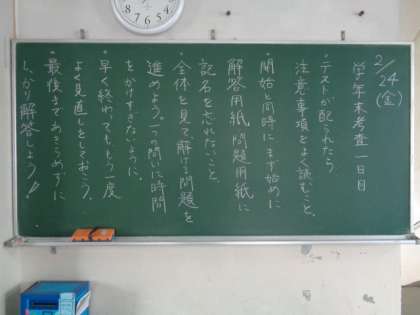 2/24(金)
学年末考査一日目
・テストが配られたら
注意事項をよく読むこと。
・開始と同時にまず始めに
解答用紙、問題用紙に
記名を忘れないこと。
・全体を見て、解ける問題を
進めよう。一つの問に時間
をかけすぎないように。
・早く終わってももう一度
よく見直しをしておこう。
・最後まであきらめずに
しっかり解答しよう!